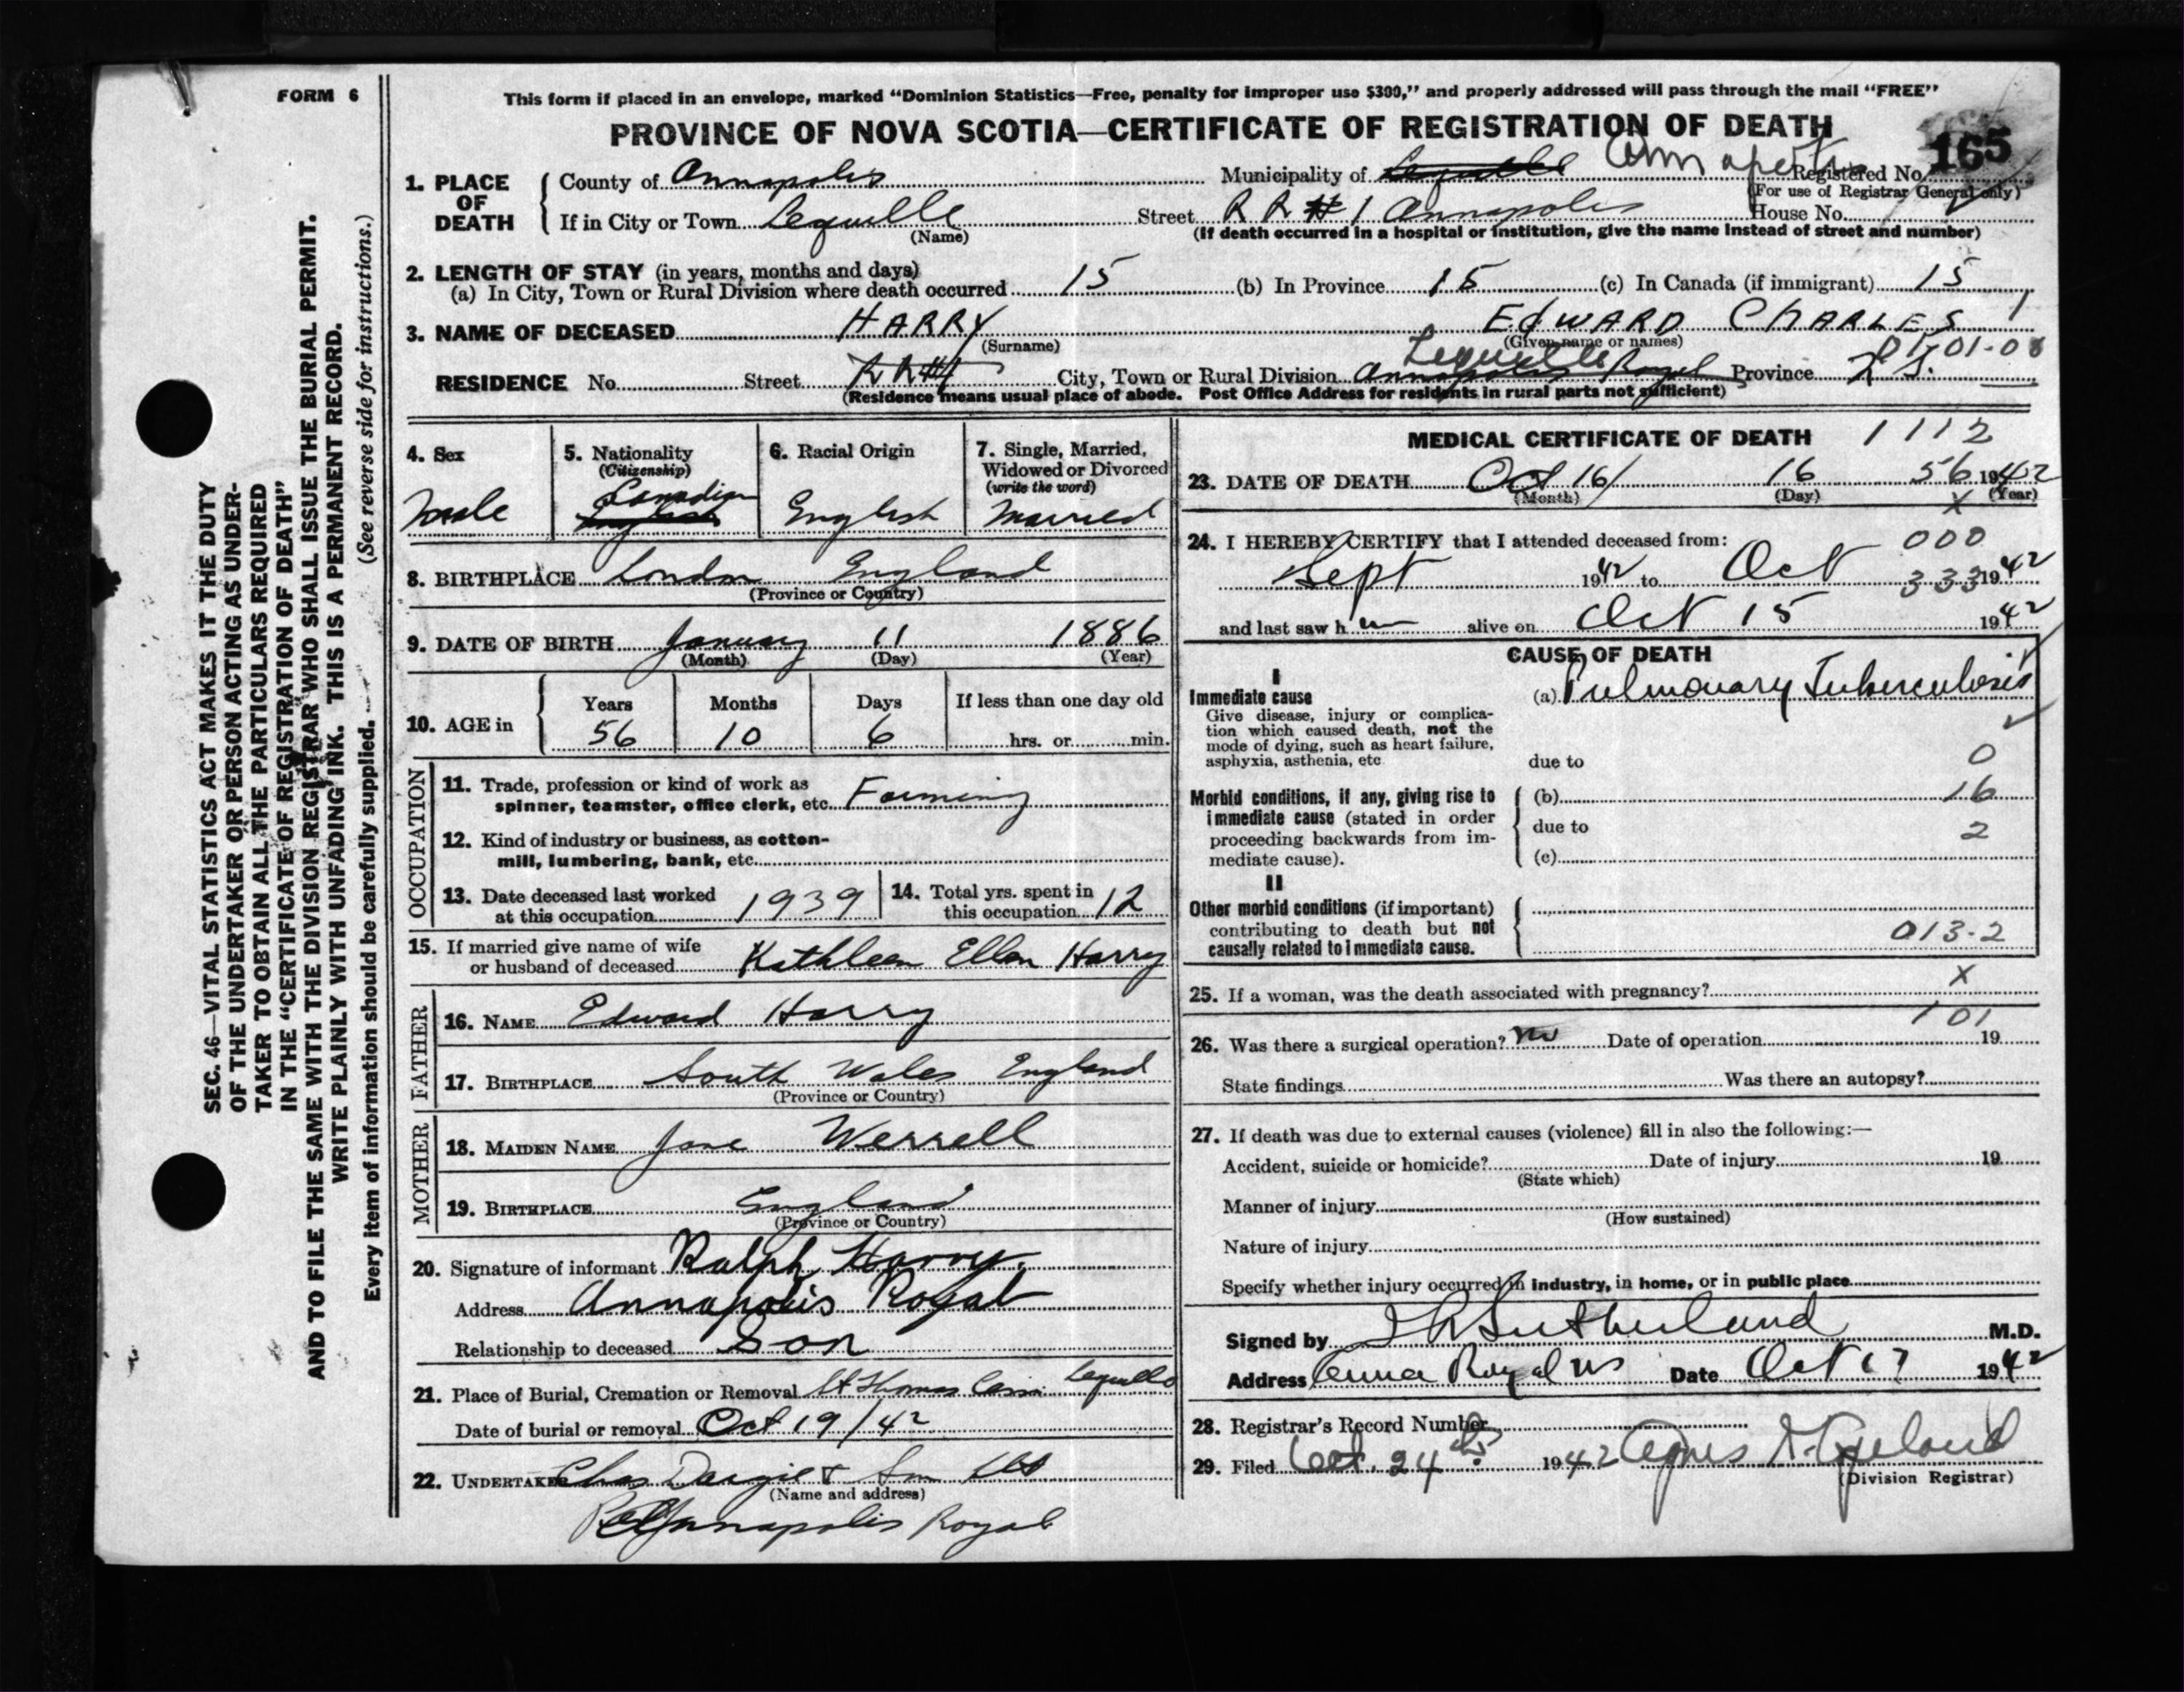 FORM 6
This form if placed in an envelope, marked “Dominion Statistics—Free, penalty for improper use $300,” and properly addressed will pass through the mail “FREE”
PROVINCE OF NOVA SCOTIA—CERTIFICATE OF REGISTRATION OF DEATH
165
1. PLACE OF DEATH
County of Annapolis Municipality of Lequille Registered No.
(For use of Registrar General only)
If in City or Town Lequille Street R R #1 Annapolis House No.
(Name) (If death occurred in a hospital or institution, give the name instead of street and number)
2. LENGTH OF STAY (in years, months and days)
(a) In City, Town or Rural Division where death occurred 15 (b) In Province 15 (c) In Canada (if immigrant) 15
3. NAME OF DECEASED HARRY EdWARD ChARLES
(Surname) (Given name or names)
Lequille
RESIDENCE No. Street RR#1 City, Town or Rural Division Annapolis Royal Province N.S.
(Residence means usual place of abode. Post Office Address for residents in rural parts not sufficient)
4. Sex
male
5. Nationality
(Citizenship)
Canadian
English
6. Racial Origin
English
7. Single, Married, Widowed or Divorced
(write the word)
Married
8. BIRTHPLACE London England
(Province or Country)
9. DATE OF BIRTH January 11 1886
(Month) (Day) (Year)
10. AGE in
Years Months Days If less than one day old
56 10 6 hrs. or min.
OCCUPATION
11. Trade, profession or kind of work as
spinner, teamster, office clerk, etc. Farming
12. Kind of industry or business, as cotton-
mill, lumbering, bank, etc.
13. Date deceased last worked
at this occupation 1939
14. Total yrs. spent in
this occupation 12
15. If married give name of wife
or husband of deceased Kathleen Ellen Harry
FATHER
16. NAME Edward Harry
17. BIRTHPLACE South Wales England
(Province or Country)
MOTHER
18. MAIDEN NAME Jane Werrell
19. BIRTHPLACE England
(Province or Country)
20. Signature of informant Ralph Harry.
Address Annapolis Royal
Relationship to deceased Son
21. Place of Burial, Cremation or Removal St Thomas Lequille
Date of burial or removal Oct 19/42
22. UNDERTAKER Chas Dargie & Son
(Name and address)
Annapolis Royal
MEDICAL CERTIFICATE OF DEATH 1112
23. DATE OF DEATH Oct 16/ 16 56 1942
(Month) (Day) (Year)
X
24. I HEREBY CERTIFY that I attended deceased from: 000
Sept 1942 to Oct 333 1942
and last saw him alive on Oct 15 1942
CAUSE OF DEATH
I
Immediate cause (a) Pulmonary Tuberculosis
Give disease, injury or complica-
tion which caused death, not the
mode of dying, such as heart failure,
asphyxia, asthenia, etc
due to 0
Morbid conditions, if any, giving rise to
immediate cause (stated in order
proceeding backwards from im-
mediate cause).
(b) 16
due to 2
(c)
II
Other morbid conditions (if important)
contributing to death but not
causally related to immediate cause.
013-2
X
25. If a woman, was the death associated with pregnancy?
101
26. Was there a surgical operation? no Date of operation 19
State findings Was there an autopsy?
27. If death was due to external causes (violence) fill in also the following:—
Accident, suicide or homicide? Date of injury 19
(State which)
Manner of injury
(How sustained)
Nature of injury
Specify whether injury occurred in industry, in home, or in public place
Signed by Sutherland M.D.
Address Anna Royal NS Date Oct 17 1942
28. Registrar's Record Number
29. Filed Oct. 24th 1942 Agnes
(Division Registrar)
SEC. 46—VITAL STATISTICS ACT MAKES IT THE DUTY
OF THE UNDERTAKER OR PERSON ACTING AS UNDER-
TAKER TO OBTAIN ALL THE PARTICULARS REQUIRED
IN THE “CERTIFICATE OF REGISTRATION OF DEATH”
AND TO FILE THE SAME WITH THE DIVISION REGISTRAR WHO SHALL ISSUE THE BURIAL PERMIT.
WRITE PLAINLY WITH UNFADING INK. THIS IS A PERMANENT RECORD.
Every item of information should be carefully supplied. (See reverse side for instructions.)